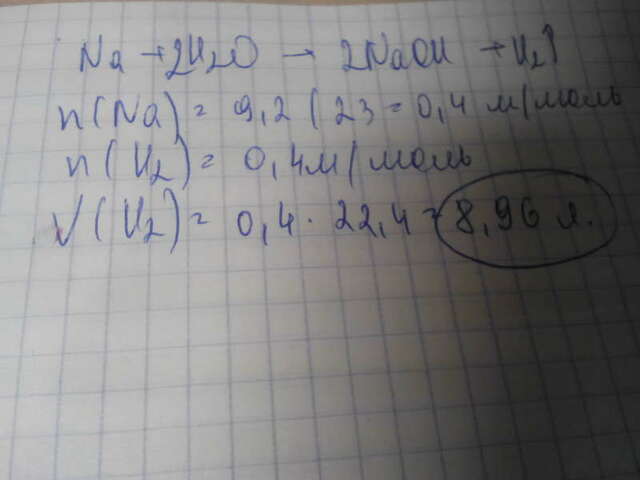 Na + 2H₂O → 2NaOH + H₂↑
n(Na) = 9,2 / 23 = 0,4 м/моль
n(H₂) = 0,4 м/моль
V(H₂) = 0,4 · 22,4 = 8,96 л.